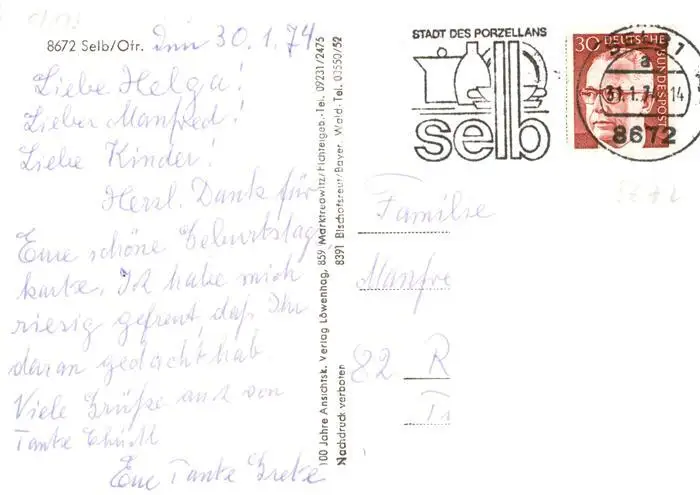 8672 Selb/Ofr. den 30.1.74
Liebe Helga!
Lieber Manfred!
Liebe Kinder!
Herzl. Dank für
Eure schöne Geburtstags
karte. Ich habe mich
riesig gefreut, daß Ihr
daran gedacht hab
Viele Grüße auch von
Tante
Eure Tante Grete
100 Jahre Ansichtsk. Verlag Löwenhag, 859 Marktredwitz/Fichtelgeb.-Tel. 09231/2475
8391 Bischofsreut/Bayer. Wald-Tel. 03550/52
Nachdruck verboten
STADT DES PORZELLANS
selb
30 DEUTSCHE
BUNDESPOST
1
a
31.1.74 14
8672
Familie
Manfre
82 R